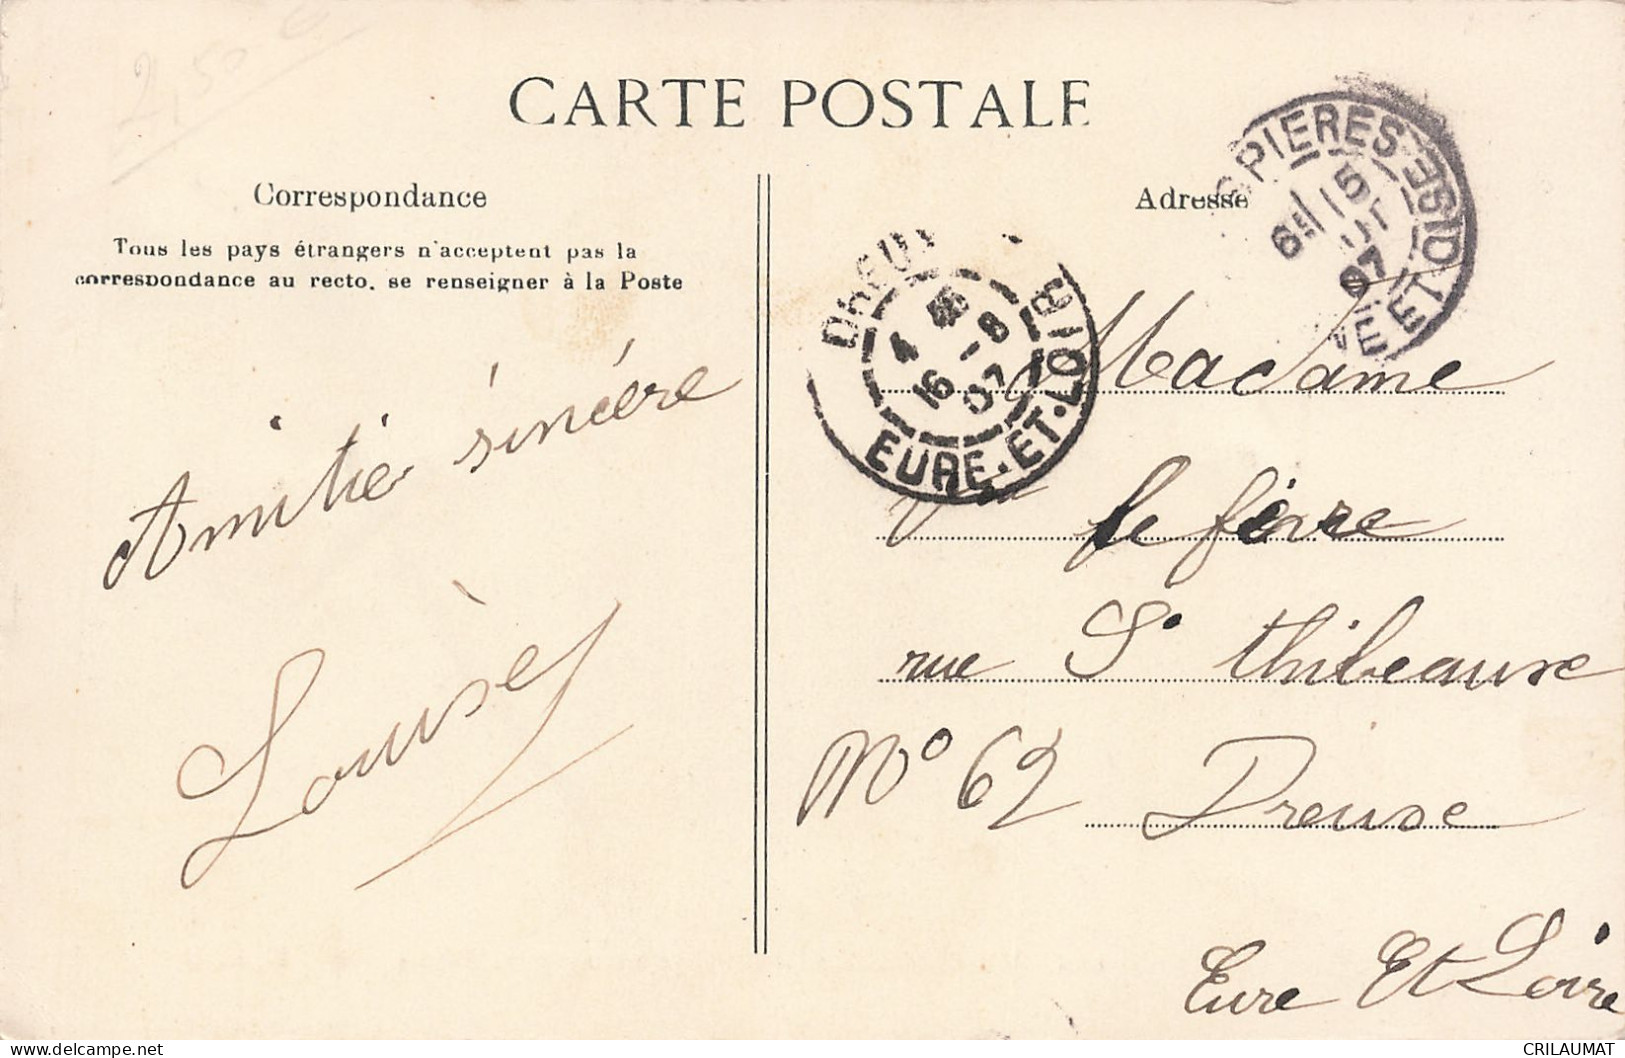 2,50 €
CARTE POSTALE
Correspondance
Tous les pays étrangers n'acceptent pas la
correspondance au recto, se renseigner à la Poste
Amitié sincère
Louise
Adresse
SPIERES-LES-ORMES
6E 15
07
DREUX
4
16 -8
07
EURE-ET-LOIR
Madame
Vve le fèvre
rue St Thibeause
No 62 Dreuse
Eure Et Loire
CRILAUMAT